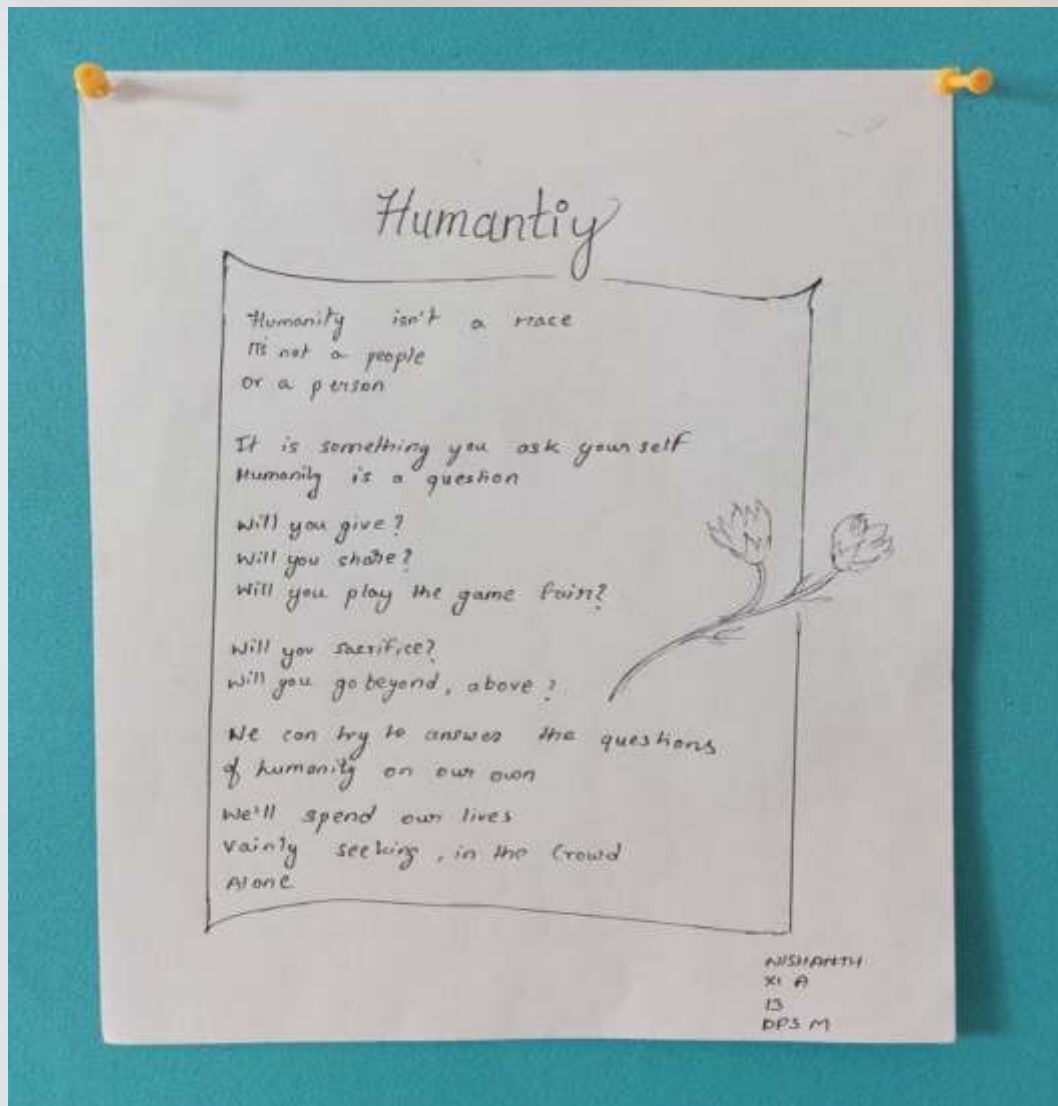 Humantiy
Humanity isn't a race
It's not a people
or a person
It is something you ask yourself
Humanity is a question
Will you give?
Will you share?
Will you play the game fair?
Will you sacrifice?
Will you go beyond, above?
We can try to answer the questions
of humanity on our own
We'll spend our lives
vainly seeking, in the crowd
Alone
NISHANTH
XI A
13
DPS M